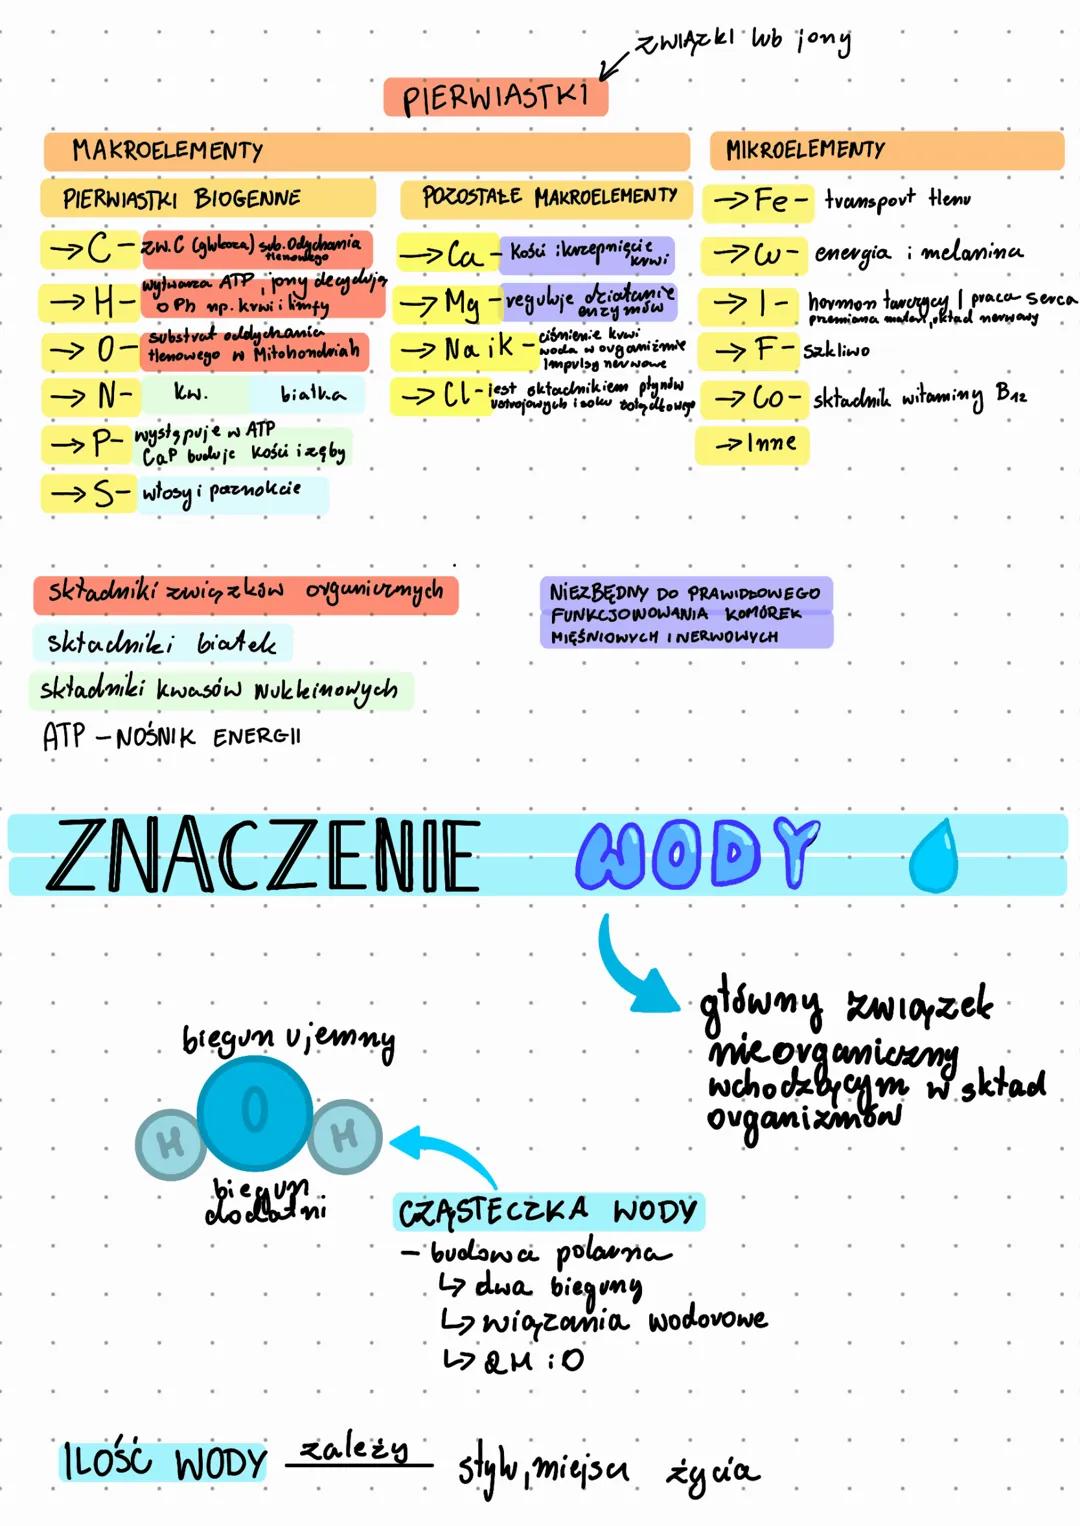 związki lub jony
PIERWIASTKI
MAKROELEMENTY
PIERWIASTKI BIOGENNE
→ C - zw. C (glukoza) sub. Odychania
tlenowego
→ H - wytwarza ATP, jony decydują
o Ph np. krwi i limfy
→ O - substrat oddychania
tlenowego w Mitohondriah
→ N - kw. białka
→ P - występuje w ATP
CaP buduje kości i zęby
→ S - włosy i paznokcie
POZOSTAŁE MAKROELEMENTY
→ Ca - kości i krzepnięcie
krwi
→ Mg - reguluje działanie
enzymów
→ Na i K - ciśnienie krwi
woda w organizmie
impulsy nerwowe
→ Cl - jest składnikiem płynów
ustrojowych i soku żołądkowego
MIKROELEMENTY
→ Fe - transport tlenu
→ Cu - energia i melanina
→ I - hormon tarczycy | praca serca
przemiana mater, układ nerwowy
→ F - Szkliwo
→ Co - składnik witaminy B12
→ Inne
składniki związków organicznych
składniki białek
składniki kwasów nukleinowych
ATP - NOŚNIK ENERGII
NIEZBĘDNY DO PRAWIDŁOWEGO
FUNKCJONOWANIA KOMÓREK
MIĘŚNIOWYCH I NERWOWYCH
ZNACZENIE WODY
główny związek
nieorganiczny
wchodzącym w skład
organizmów
biegun ujemny
H O H
biegun
dodatni
CZĄSTECZKA WODY
- budowa polarna
↳ dwa bieguny
↳ wiązania wodorowe
↳ 2H i O
ILOŚĆ WODY zależy stylu, miejsca życia